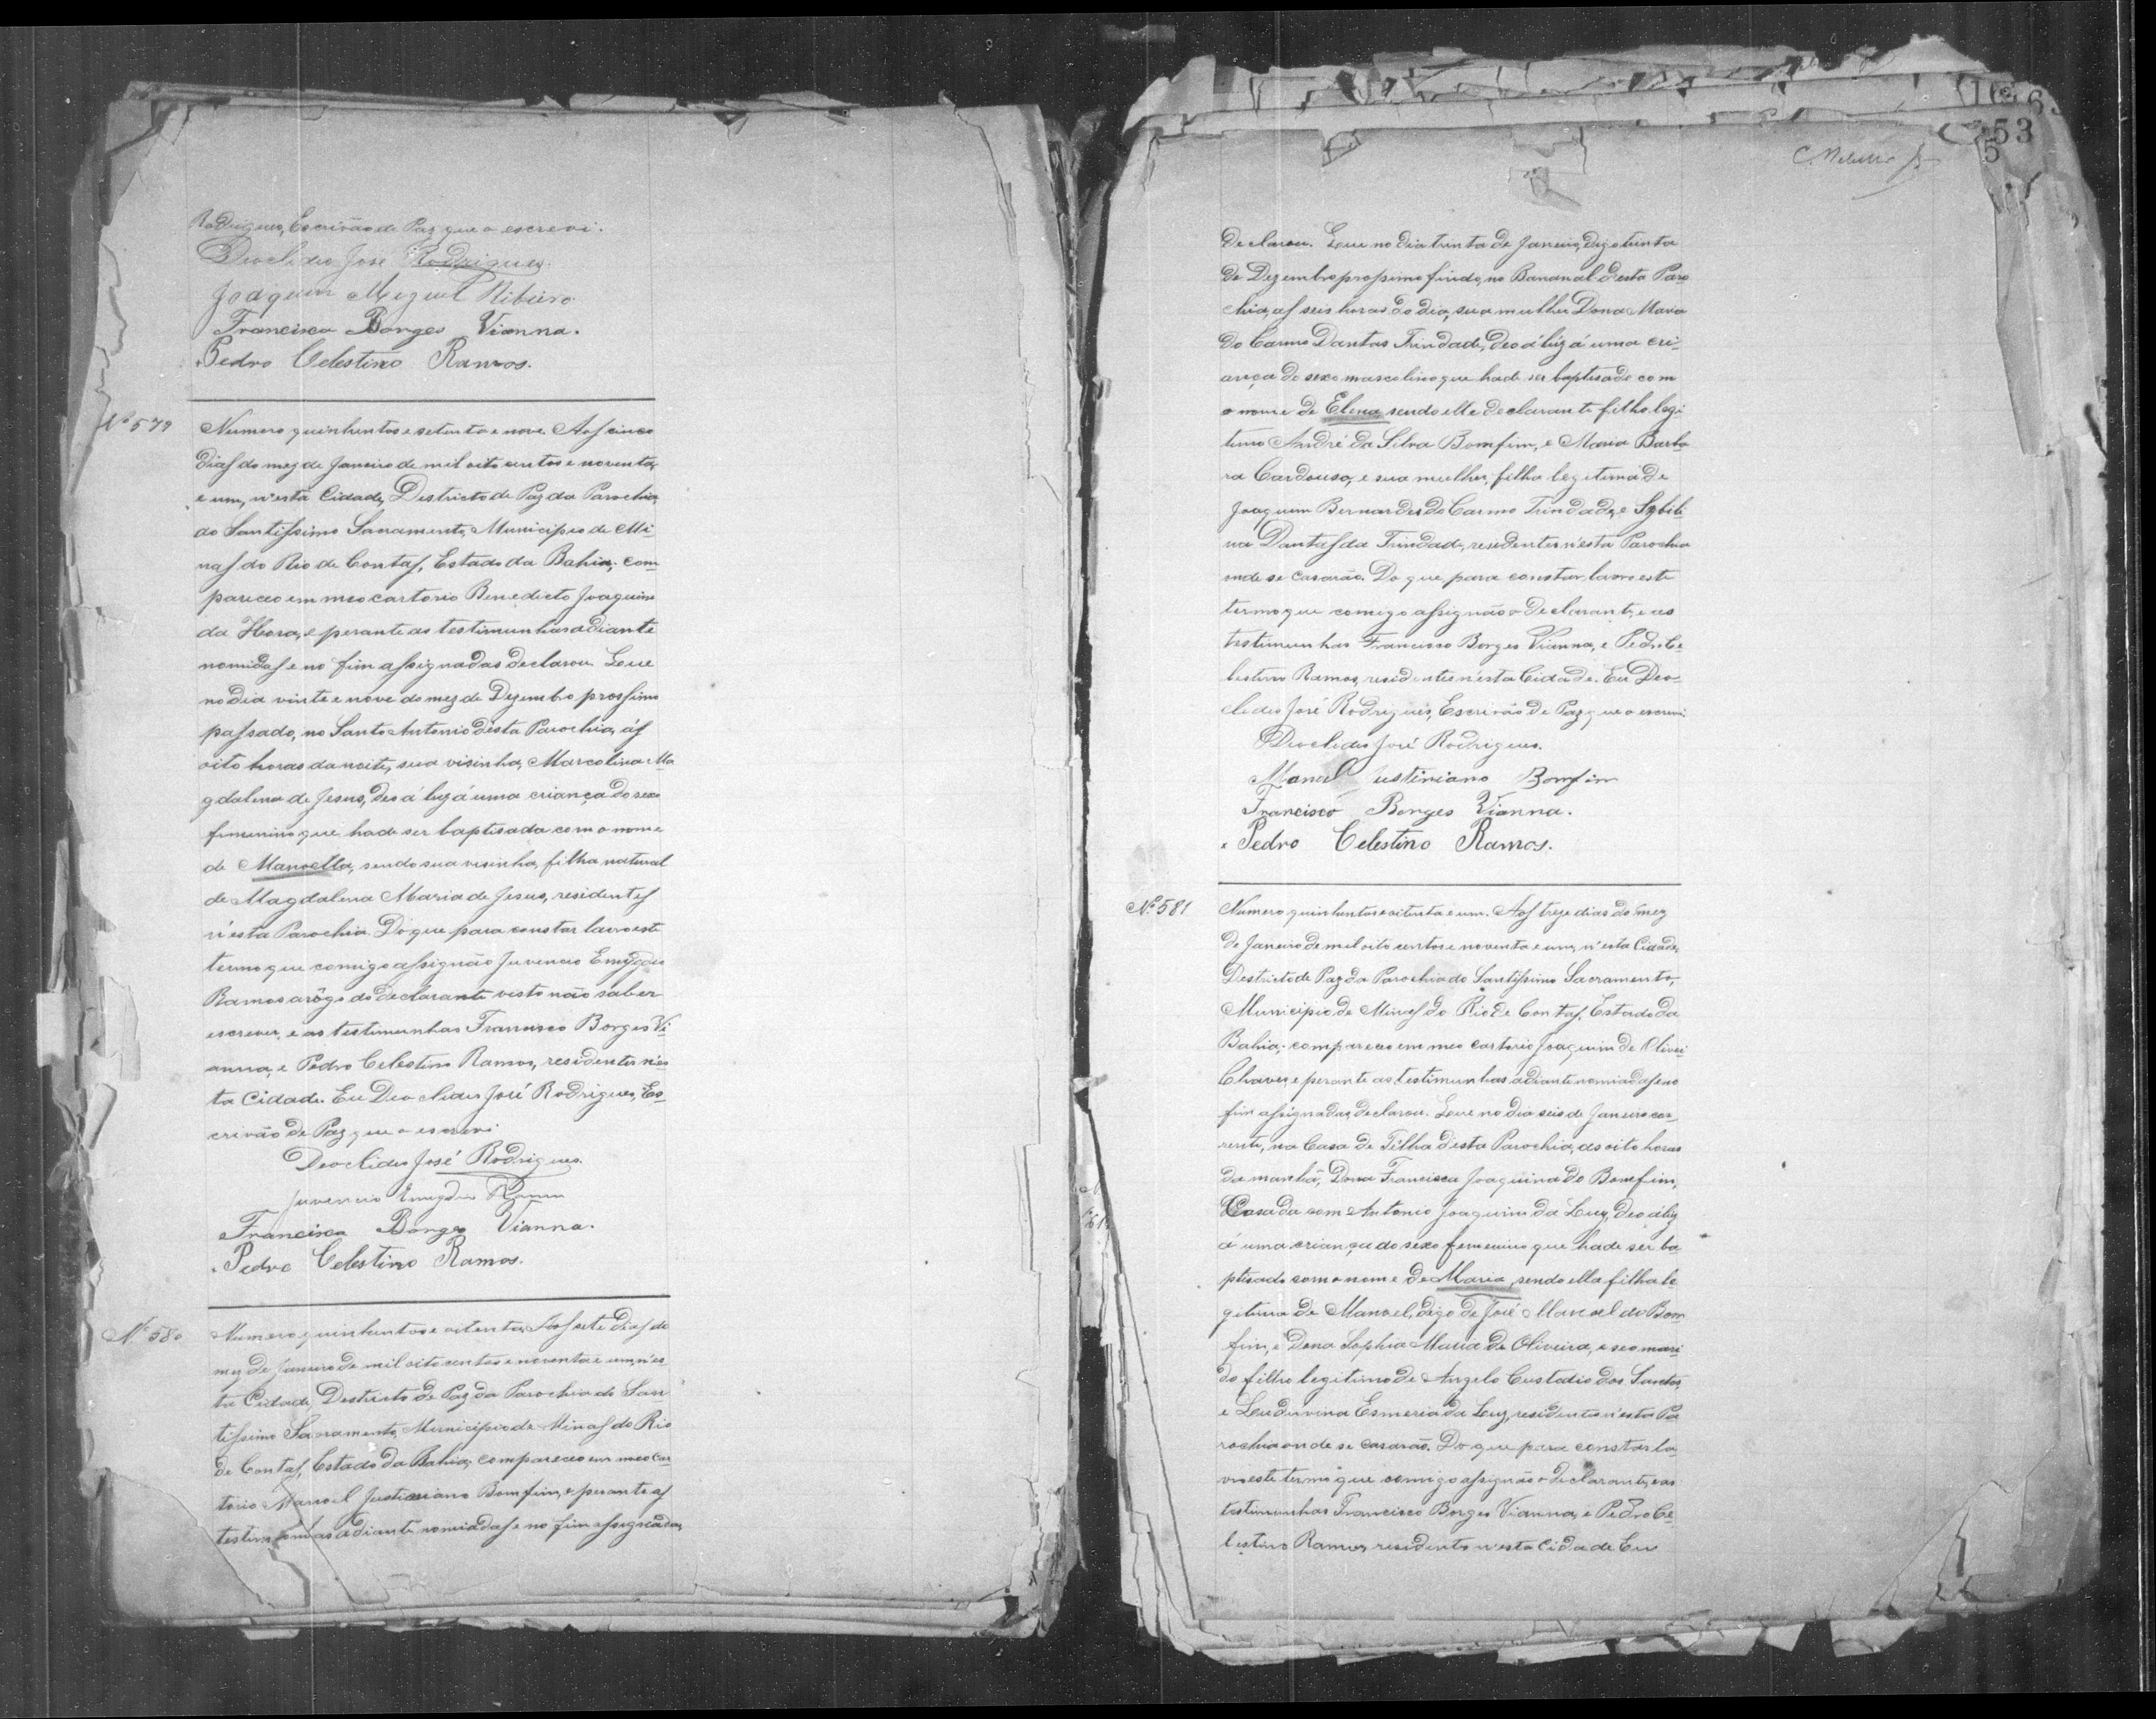 Rodrigues, Escrivão de Paz que o escrevi.
Deoclides José Rodrigues.
Joaquim Miguel Ribeiro
Francisco Borges Vianna.
Pedro Celestino Ramos.
Nº 579
Numero quinhentos e setenta e nove. Aos cinco
dias do mez de Janeiro de mil oito centos e noventa
e um, n'esta Cidade, Destricto de Paz da Parochia
do Santissimo Sacramento, Municipio de Mi
nas do Rio de Contas, Estado da Bahia, com
pareceo em meo cartorio Benedicto Joaquim
da Hora, e perante as testimunhas adiante
nomidas e no fim assignadas declarou. Que
no dia vinte e nove do mez de Dezembro prossimo
passado, no Santo Antonio d'esta Parochia, ás
oito horas da noite, sua visinha, Marcolina Ma
gdalena de Jesus, deo á luz á uma criança do sexo
femenino que hade ser baptisada com o nome
de Manoella, sendo sua visinha, filha natural
de Magdalena Maria de Jesus, residentes
n'esta Parochia. Do que para constar lavro este
termo que comigo assignão Juvencio Emygdio
Ramos arôgo do declarante visto não saber
escrever, e as testimunhas Francisco Borges Vi
anna, e Pedro Celestino Ramos, residentes n'es
ta Cidade. Eu Deoclides José Rodrigues, Es
crivão de Paz que o escrevi
Deoclides José Rodrigues.
Juvencio Emygdio Ramos
Francisco Borges Vianna.
Pedro Celestino Ramos.
Nº 580
Numero quinhentos e oitenta, Aos sete dias do
mez de Janeiro de mil oito centos e noventa e um, n'es
ta Cidade, Destricto de Paz da Parochia do San
tissimo Sacramento, Municipio de Minas do Rio
de Contas, Estado da Bahia, compareceo em meo car
torio Manoel Justiniano Bomfim, e perante as
testimunhas adiante nomiadas e no fim assignadas,
53
5
declarou. Que no dia trinta de Janeiro, digo trinta
de Dezembro prossimo findo, no Bananal d'esta Paro
chia, as seis horas do dia, sua mulher Dona Maria
do Carmo Dantas Trindade, deo á lúz á uma cri
ança do sexo mascolino que hade ser baptisado com
o nome de Elena sendo elle declarante filho legi
timo André da Silva Bomfim, e Maria Barba
ra Cardouso, e sua mulher, filha legitima de
Joaquim Bernardes do Carmo Trindade, e Sybili
na Dantas da Trindade, residentes n'esta Parochia
onde se casarão. Do que para constar lavro este
termo que comigo assignão o declarante, e as
testimunhas Francisco Borges Vianna, e Pedro Ce
lestino Ramos, residentes n'esta Cidade. Eu Deo
clides José Rodrigues, Escrivão de Paz que o escrevi.
Deoclides José Rodrigues.
Manoel Justiniano Bomfim
Francisco Borges Vianna.
Pedro Celestino Ramos.
Nº 581
Numero quinhentos e oitenta e um. Aos treze dias do mez
de Janeiro de mil oito centos e noventa e um, n'esta Cidade,
Destricto de Paz da Parochia do Santissimo Sacramento,
Municipio de Minas do Rio de Contas, Estado da
Bahia, compareceo em meo cartorio Joaquim de Olivei
Chaves, e perante as testimunhas adiante nomiadas e no
fim assignadas, declarou. Que no dia seis de Janeiro cor
rente, na Casa de Têlha d'esta Parochia, as oito horas
da manhã, Dona Francisca Joaquina do Bomfim,
Casada com Antonio Joaquim da Luz, deo á luz
á uma criança do sexo femenino que hade ser ba
ptisado com o nome de Maria, sendo ella filha le
gitima de Manoel, digo de José Manoel do Bom
fim, e Dona Sophia Maria de Oliveira, e seo mari
do filho legitimo de Angelo Custodio dos Santos,
e Leuduvina Esmeria da Luz, residentes n'esta Pa
rochia onde se casarão. Do que para constar la
vro este termo que comigo assignão o declarante, e as
testimunhas Francisco Borges Vianna, e Pedro Ce
lestino Ramos, residentes n'esta Cidade Eu